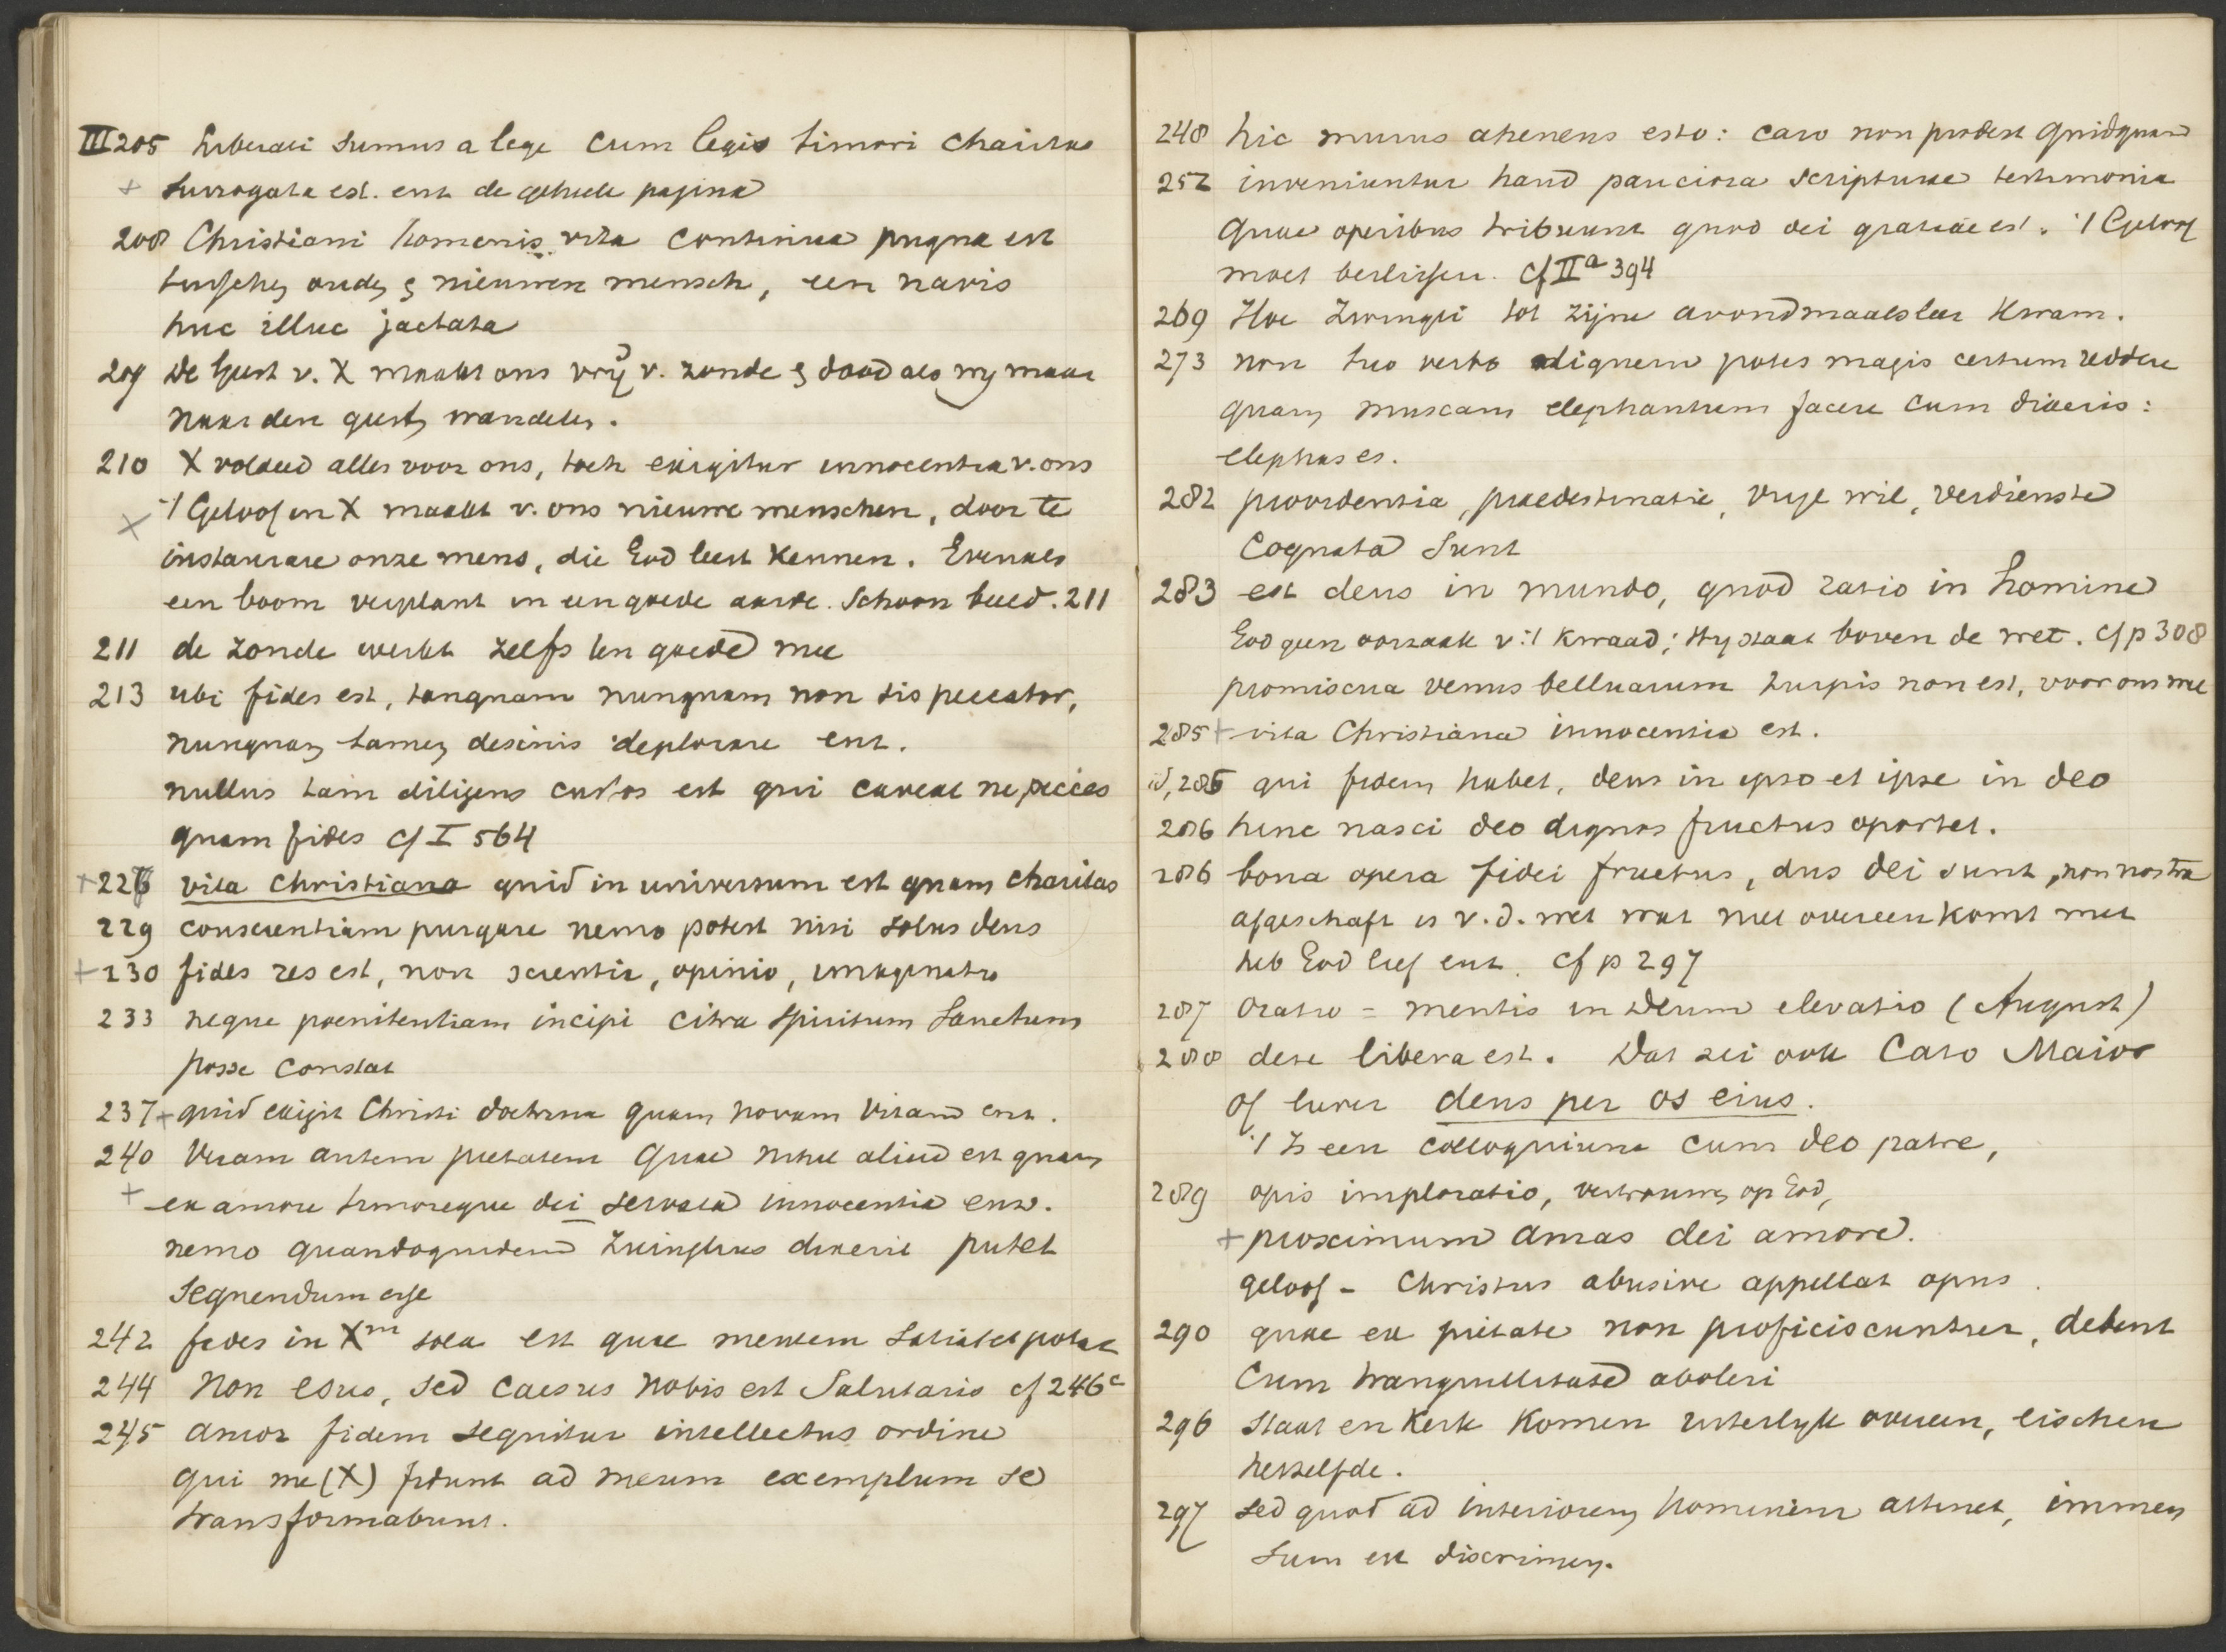 III 205 Liberati sumus a lege cum legis timori charitas
+ surrogata est. enz de geheele pagina
208 Christiani homenis vita continua pugna est
tusschen ouden & nieuwen mensch, een navis
huc illuc jactata
209 De Geest v. X maakt ons vrij v. zonde & dood als wij maar
naar den geest wandelen.
210 X voldeed alles voor ons, toch exigitur innocentia v. ons
X 't Geloof in X maakt v. ons nieuwe menschen, door te
instaurare onze mens, die God leert kennen. Evenals
een boom verplant in een goede aarde. Schoon beeld. 211
211 de zonde werkt zelfs ten goede mee
213 ubi fides est, tanquam nunquam non sis peccator,
nunquam tamen desinis deplorare enz.
nullus tam diligens custos est qui caveat ne pecces
quam fides cf I 564
+ 226 vita Christiana quid in universum est quam charitas
229 conscientiam purgare nemo potest nisi solus deus
+ 230 fides res est, non scientia, opinio, imaginatio
233 neque poenitentiam incipi citra Spiritum Sanctum
posse constat
237 + quid exigit Christi doctrina quam novam vitam enz.
240 Veram autem pietatem quae nihil aliud est quam
+ ex amore timoreque dei servata innocentia enz.
nemo quandoquidem Zuinglius dixerit putet
sequendum esse
242 fides in Xm sola est quae mentem satiat et potat
244 Non esus, sed caesus nobis est salutaris cf 246c
245 amor fidem sequitur intellectus ordine
qui me (X) fidunt ad meum exemplum se
transformabunt.
248 hic murus aheneus esto: caro non prodest quidquam
252 inveniuntur haud pauciora scripturae testimonia
quae operibus tribuunt quod dei gratiae est. 't Geloof
moet beslissen. cf IIa 394
269 Hoe Zwingli tot zijne avondmaalsleer kwam.
273 non tuo verbo aliquem potes magis certum reddere
quam muscam elephantem facere cum dixeris:
elephas es.
282 providentia, praedestinatie, vrije wil, verdienste
cognata sunt
283 est deus in mundo, quod ratio in homine
God geen oorzaak v. 't kwaad; Hij staat boven de wet. cf p 308
promiscua venus belluarum turpis non est, voor ons wel
285 + vita Christiana innocentia est.
id, 285 qui fidem habet, deus in ipso et ipse in deo
286 hinc nasci deo dignos fructus oportet.
286 bona opera fidei fructus, dus dei sunt, non nostra
afgeschaft is v. d. wet wat niet overeenkomt met
heb God lief enz. cf p 297
287 oratio = mentis in Deum elevatio (August)
288 deze libera est. Dat zei ook Cato Maior
of liever deus per os eius.
't Is een colloquium cum deo patre,
289 opis imploratio, vertrouwen op God,
+ proximum amas dei amore.
geloof - Christus abusive appellat opus.
290 quae ex pietate non proficiscuntur, debent
cum tranquillitate aboleri
296 Staat en Kerk komen uiterlijk overeen, eischen
hetzelfde.
297 sed quod ad interiorem hominem attinet, immen
sum est discrimen.